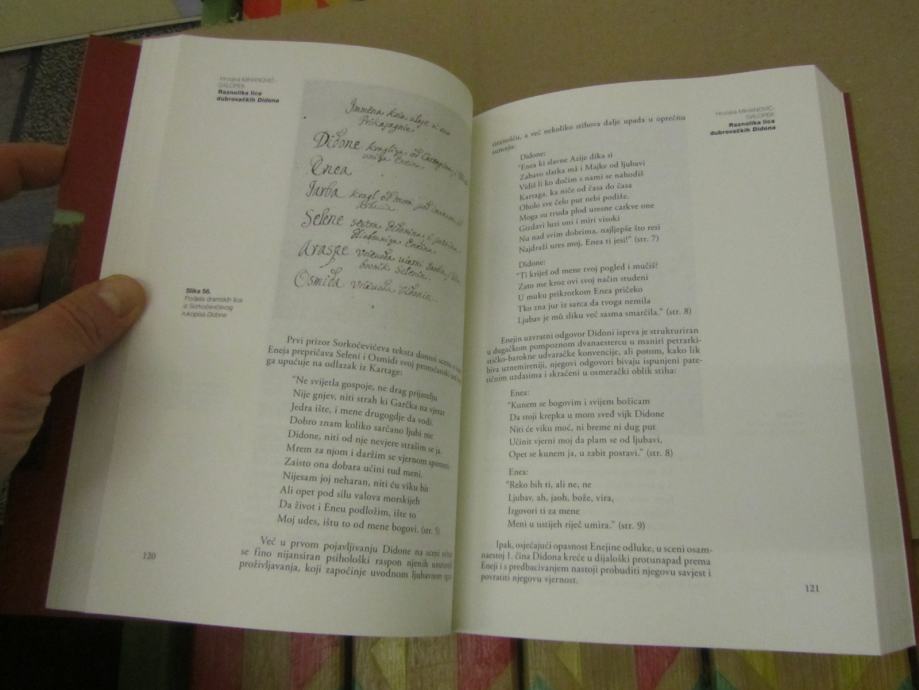 Hrvojka MIHANOVIĆ-
SALOPEK
Raznolika lica
dubrovačkih Didona
Didone
Enea
Jarba
Selene
Araspe
Osmida
Slika 56.
Podjela dramskih lica
iz Sorkočevićevog
rukopisa Didone
Prvi prizor Sorkočevićeva teksta donosi scenu u
Eneja prepričava Seleni i Osmidi svoj
ga upućuje na odlazak iz Kartage:
"Ne svijetla gospoje, ne drag prijatelju
Nije gnjev, niti strah ki Garčka na vjetar
Jedra ište, i mene drugogdje da vodi.
Dobro znam koliko sarčano ljubi me
Didone, niti od nje nevjere strašim se ja.
Mrem za njom i daržim se vjernom
Zaisto ona dobara učini tud meni.
Nijesam joj neharan, niti ću viku bit
Ali opet pod silu valova morskijeh
Da život i Eneu podložim, ište to
Moj udes, ištu to od mene bogovi. (str. 5)
Već u prvom pojavljivanju Didone na sceni
se fino nijansiran psihološki raspon njenih
proživljavanja, koji započinje uvodnom ljubavnom
120
Hrvojka MIHANOVIĆ-
SALOPEK
Raznolika lica
dubrovačkih Didona
a već nekoliko stihova dalje upada u oprečnu
sumnju:
Didone:
"Enea ki slavne Azije dika si
Zabavo slatka má i Majke od ljubavi
Vidiš li ko dočim s nami se nahodiš
Kartaga, ka niče od časa do časa
Oholo sve čelo put nebi podiže.
Moga su truda plod uresne carkve one
Gizdavi luzi oni i miri visoki
Na nad svim dobrima, najljepše što resi
Najdraži ures moj, Enea ti jesi!" (str. 7)
Didone:
"Ti kriješ od mene tvoj pogled i mučiš?
Zato me kroz ovi svoj način studeni
U muku prikrotkom Enea pričeko
Tko zna jur iz sarca da tvoga nemila
Ljubav je mû sliku već sasma smarčila." (str. 8)
Enejin uzvratni odgovor Didoni ispeva je strukturiran
u dugačkom pompoznom dvanaestercu u maniri petrarki-
stičko-barokne udvaračke konvencije, ali potom, kako lik
biva uznemireniji, njegovi odgovori bivaju ispunjeni pate-
tičnim uzdasima i skraćeni u osmerački oblik stiha:
Enea:
"Kunem se bogovim i svijem božicam
Da stoji krepka u mom sved vijk Didone
Niti će viku moć, ni breme ni dug put
Učinit vjerni moj da plam se od ljubavi,
Opet se kunem ja, u zabit postavi." (str. 8)
Enea:
"Reko bih ti, ali ne, ne
Ljubav, ah, jaoh, bože, vira,
Izgovori ti za mene
Meni u ustijeh riječ umira." (str. 9)
Ipak, osjećajući opasnost Enejine odluke, u sceni osam-
naestoj 1. čina Didona kreće u dijaloški protunapad prema
Eneji i s predbacivanjem nastoji probuditi njegovu savjest i
povratiti njegovu vjernost.
121